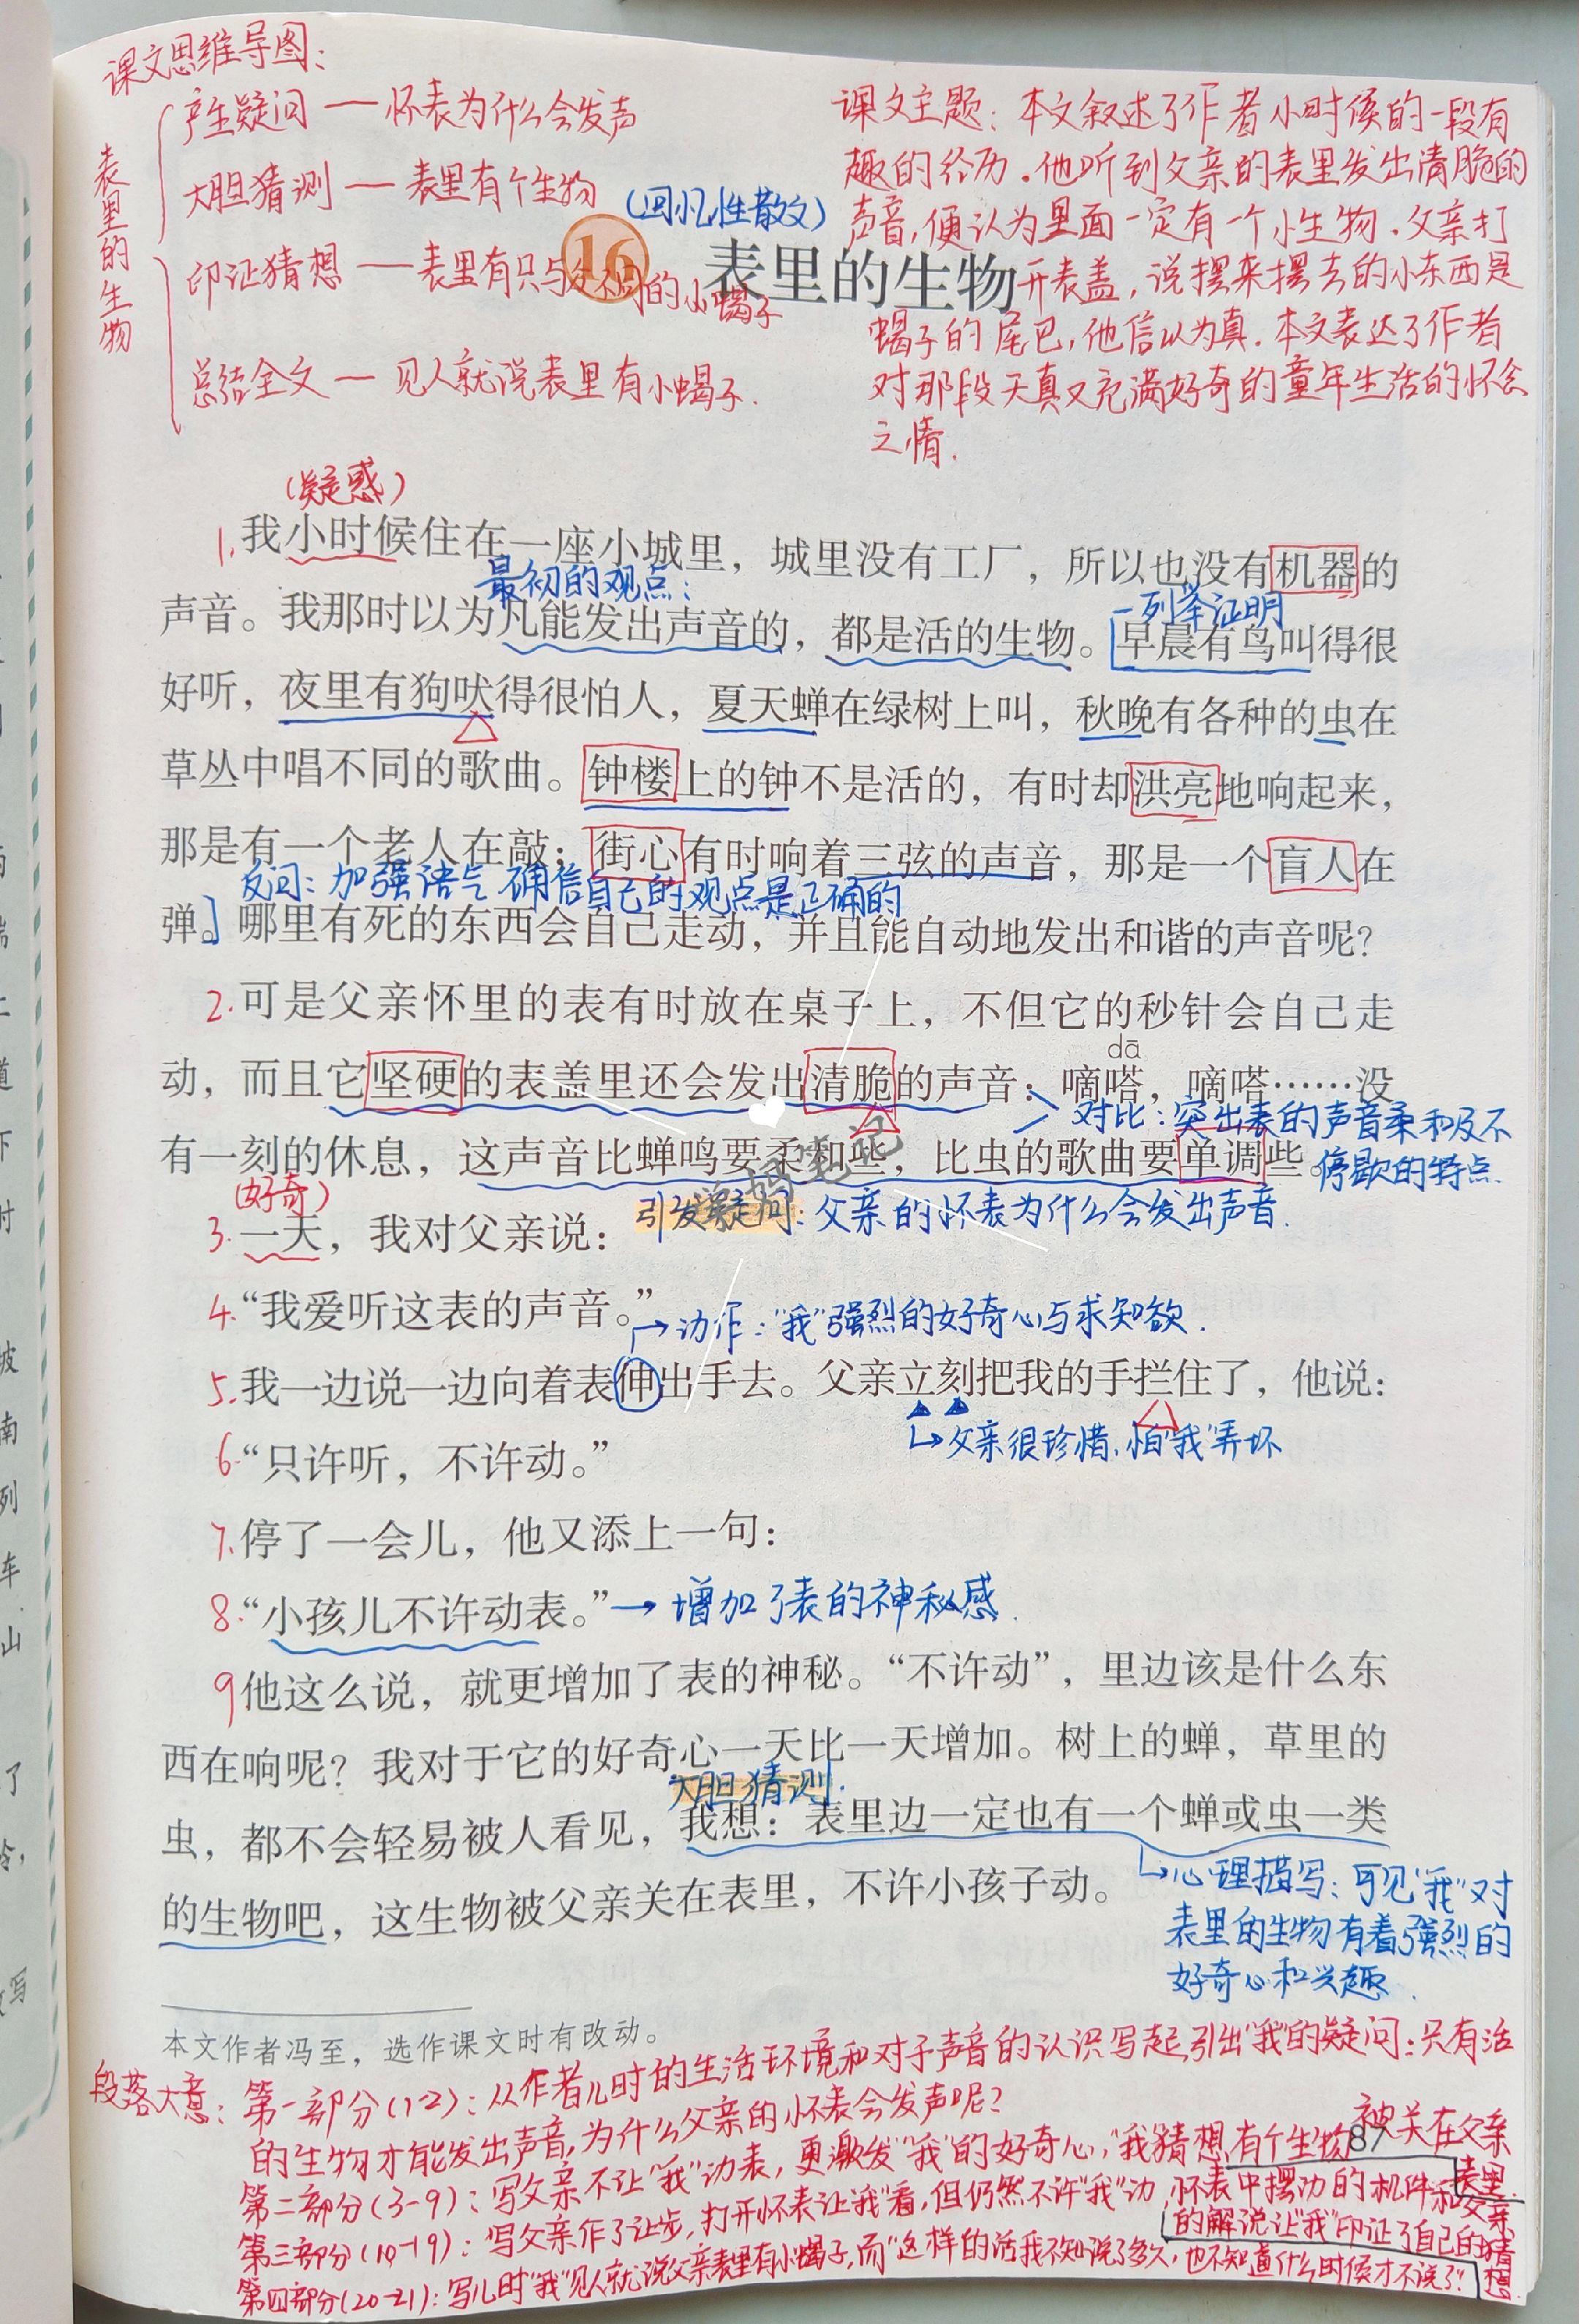 课文思维导图：
表里的生物
产生疑问 — 怀表为什么会发声
大胆猜测 — 表里有个生物
印证猜想 — 表里有只与众不同的小蝎子
总结全文 — 见人就说表里有小蝎子.
课文主题：本文叙述了作者小时候的一段有
趣的经历.他听到父亲的表里发出清脆的
声音,便认为里面一定有一个小生物.父亲打
开表盖,说摆来摆去的小东西是
蝎子的尾巴,他信以为真.本文表达了作者
对那段天真又充满好奇的童年生活的怀念
之情.
(回忆性散文)
16 表里的生物
(疑惑)
1.我小时候住在一座小城里，城里没有工厂，所以也没有机器的
最初的观点：
→列举证明
声音。我那时以为凡能发出声音的，都是活的生物。早晨有鸟叫得很
好听，夜里有狗吠得很怕人，夏天蝉在绿树上叫，秋晚有各种的虫在
草丛中唱不同的歌曲。钟楼上的钟不是活的，有时却洪亮地响起来，
那是有一个老人在敲；街心有时响着三弦的声音，那是一个盲人在
反问：加强语气 确信自己的观点是正确的
弹。哪里有死的东西会自己走动，并且能自动地发出和谐的声音呢？
2.可是父亲怀里的表有时放在桌子上，不但它的秒针会自己走
dā
动，而且它坚硬的表盖里还会发出清脆的声音：嘀嗒，嘀嗒……没
对比：突出表的声音柔和及不
停歇的特点.
有一刻的休息，这声音比蝉鸣要柔和些，比虫的歌曲要单调些。
(好奇)
引发疑问：父亲的怀表为什么会发出声音.
3.一天，我对父亲说：
4.“我爱听这表的声音。”
→动作：“我”强烈的好奇心与求知欲.
5.我一边说一边向着表伸出手去。父亲立刻把我的手拦住了，他说：
父亲很珍惜,怕“我”弄坏
6.“只许听，不许动。”
7.停了一会儿，他又添上一句：
8.“小孩儿不许动表。”→增加了表的神秘感.
9他这么说，就更增加了表的神秘。“不许动”，里边该是什么东
西在响呢？我对于它的好奇心一天比一天增加。树上的蝉，草里的
大胆猜测.
虫，都不会轻易被人看见，我想：表里边一定也有一个蝉或虫一类
的生物吧，这生物被父亲关在表里，不许小孩子动。
心理描写：可见“我”对
表里的生物有着强烈的
好奇心和兴趣.
本文作者冯至，选作课文时有改动。
段落大意：第一部分(1-2)：从作者儿时的生活环境和对于声音的认识写起,引出“我”的疑问：只有活
的生物才能发出声音,为什么父亲的怀表会发声呢？
第二部分(3-9)：写父亲不让“我”动表，更激发“我”的好奇心,“我”猜想有个生物被关在父亲
表里.
87
第三部分(10-19)：写父亲作了让步,打开怀表让“我”看,但仍然不许“我”动,怀表中摆动的机件和父亲
的解说让“我”印证了自己的猜想
第四部分(20-21)：写儿时“我”见人就说父亲表里有小蝎子,而“这样的话我不知说了多久,也不知道什么时候才不说了”